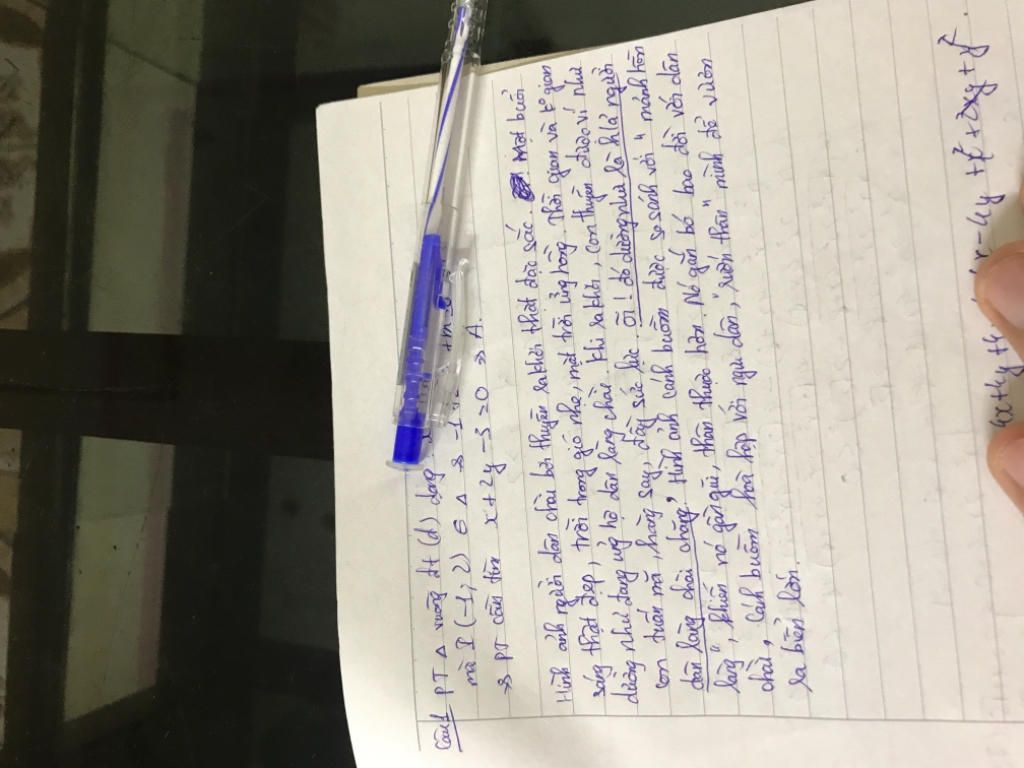 Câu 1 PT Δ vuông đt (d) dạng
mà I (-1, 2) ∈ Δ ⇒ -1
⇒ PT cần tìm x + 2y - 3 = 0 ⇒ A.
Hình ảnh người dân chài bơi thuyền ra khơi thật đặc sắc. Một buổi
sáng thật đẹp, trời trong gió nhẹ, mặt trời ửng hồng. Thời gian và ko gian
dường như đang ủng hộ dân làng chài. Khi ra khơi, con thuyền được ví như
con tuấn mã, hăng say, đầy sức lực. Ôi! đó dường như là h/ả người
dân làng chài chăng, Hình ảnh cánh buồm được so sánh với "mảnh hồn
làng", khiến nó gần gũi, thân thuộc hơn. Nó gắn bó bao đời với dân
chài, cánh buồm hoà hợp với ngư dân, "rướn thân" mình để vươn
ra biển lớn.
4x + 4y + 4
- 4y + y² + 2xy + y².